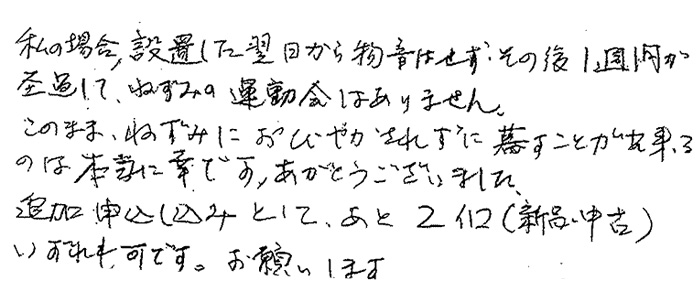 私の場合、設置した翌日から物音はせず、その後1週間が
经過して、ねずみの運動会はありません。
このまま、ねずみにおびやかされずに暮すことが出来る
のは本当に幸です。ありがとうございました。
追加申込込みとして、あと2個(新品、中古)
いずれも可です。お願いします